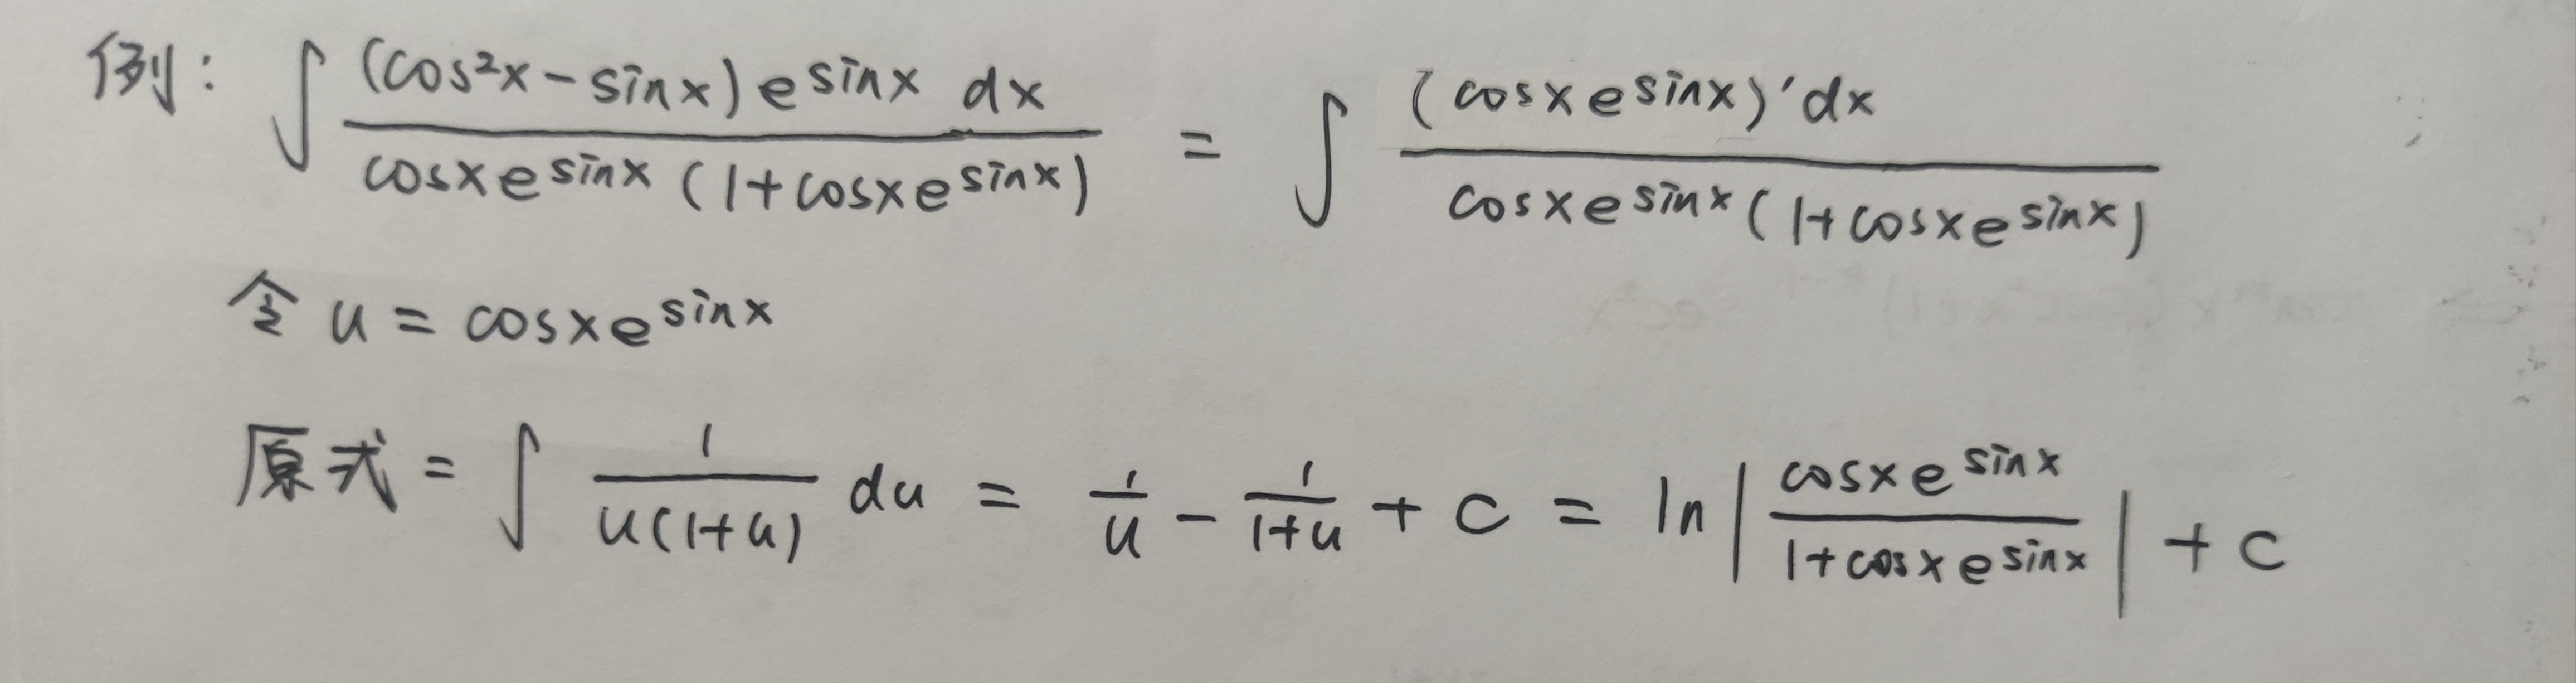 例: ∫ (cos²x - sinx) e^{sinx} dx / cosx e^{sinx} (1+cosx e^{sinx}) = ∫ (cosx e^{sinx})' dx / cosx e^{sinx} (1+cosx e^{sinx})
令 u = cosx e^{sinx}
原式 = ∫ 1/u(1+u) du = 1/u - 1/1+u + c = ln | cosx e^{sinx} / 1+cosx e^{sinx} | + c